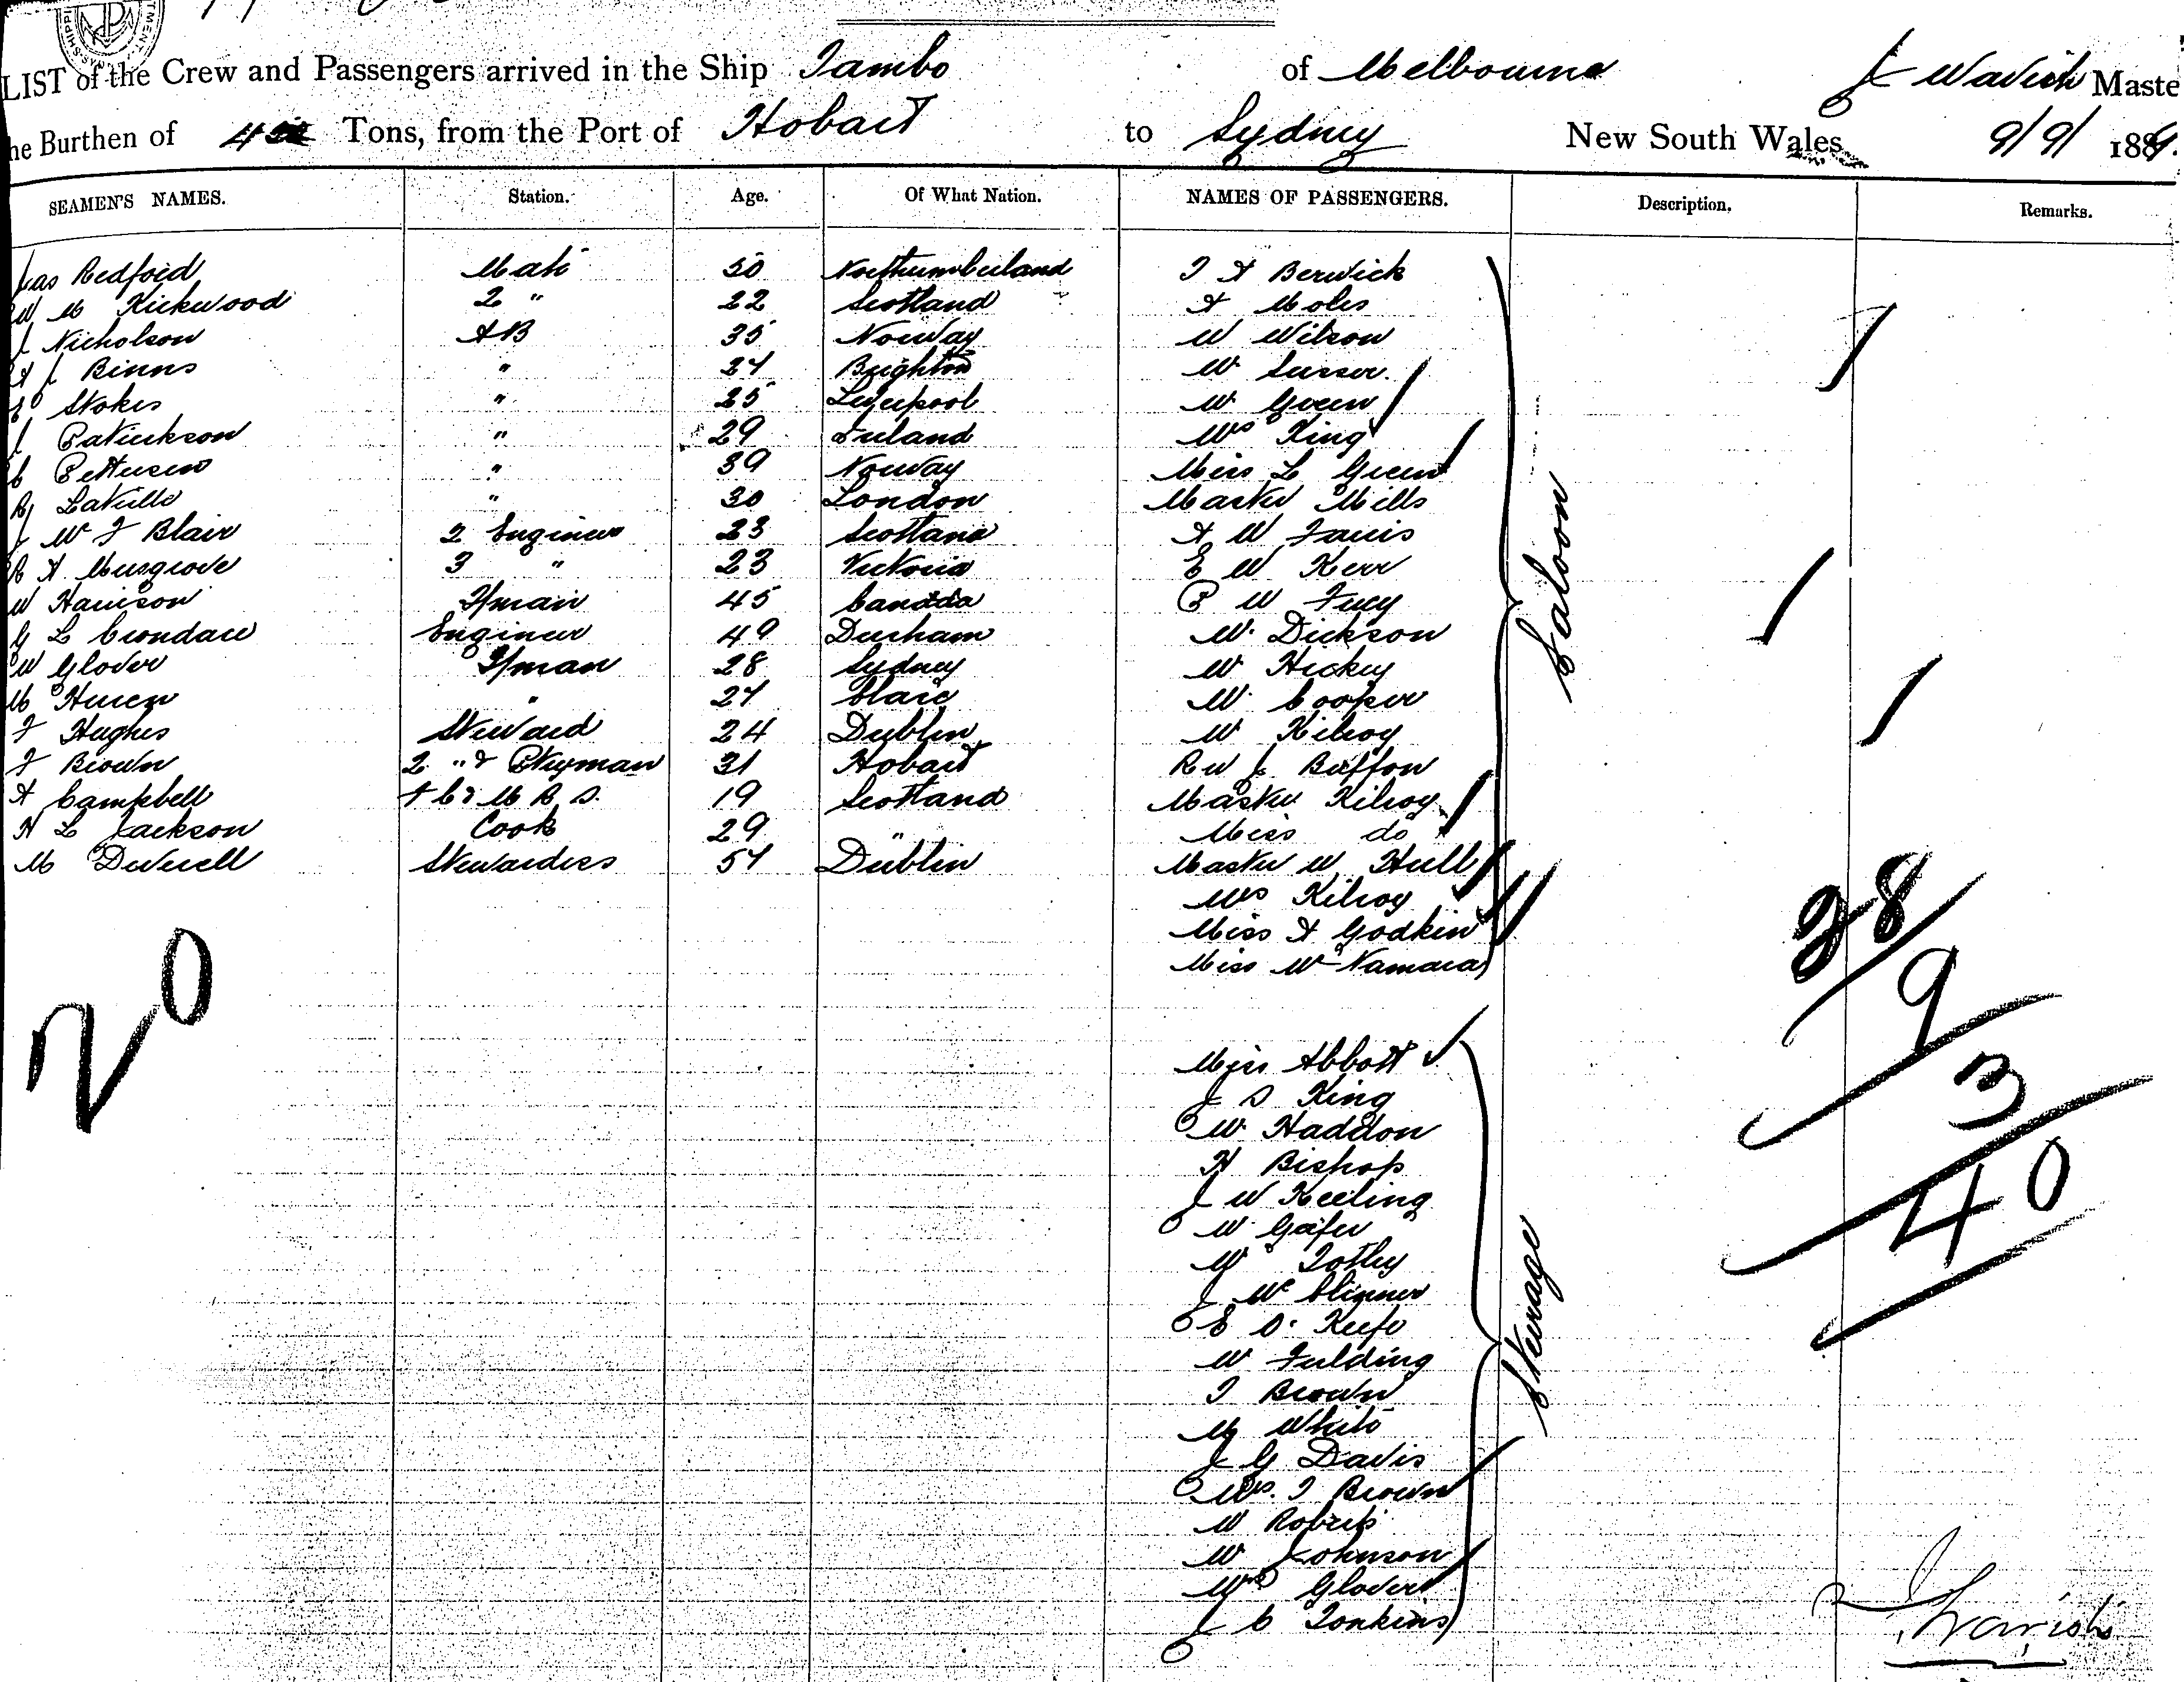 LIST of the Crew and Passengers arrived in the Ship Tambo of Melbourne J Wavish Maste
he Burthen of Tons, from the Port of Hobart to Sydney New South Wales 9/9/ 188
SEAMEN'S NAMES. Station. Age. Of What Nation. NAMES OF PASSENGERS. Description. Remarks.
Jas Redford Mate 50 Northumberland J A Berwick
W M Kirkwood 2 " 22 Scotland A Moles
J Nicholson AB 35 Norway W Wilson
A J Binns " 27 Brighton W Susser.
E Stokes " 25 Liverpool W Green
J Patrickson " 29 Ireland Mrs King
C Pettersen " 39 Norway Miss L Green
R Laville " 30 London Master Mills
J W F Blair 2 Engineer 23 Scotland A W Farris
R A Musgrove 3 " 23 Victoria E W Kerr
W Harrison F/man 45 Canada P W Fucy
G L Crondace Engineer 49 Durham W. Dickson
W Glover F/man 28 Sydney W Hickey
M Huren " 27 Clare W. Cooper
F Hughes Steward 24 Dublin W Kilroy
F Brown 2 " & Ptryman 31 Hobart Rev J. Buffon
A Campbell 19 Scotland Master Kilroy
H L Jackson Cook 29 " Miss do
M Deverell Stewardess 57 Dublin Master W Hull
Mrs Kilroy
Miss A Godkin
Miss McNamara
Saloon
20
28
9
3
40
Miss Abbott
J S King
W. Haddon
H Bishop
J W Keeling
W
W Totley
J Mc
E O. Keefe
W Fulding
T Brown
M White
J G Davis
Mrs. T Brown
W Roberts
W Johnson
Mrs Glover
J C Tonkins
Steerage
J Wavish